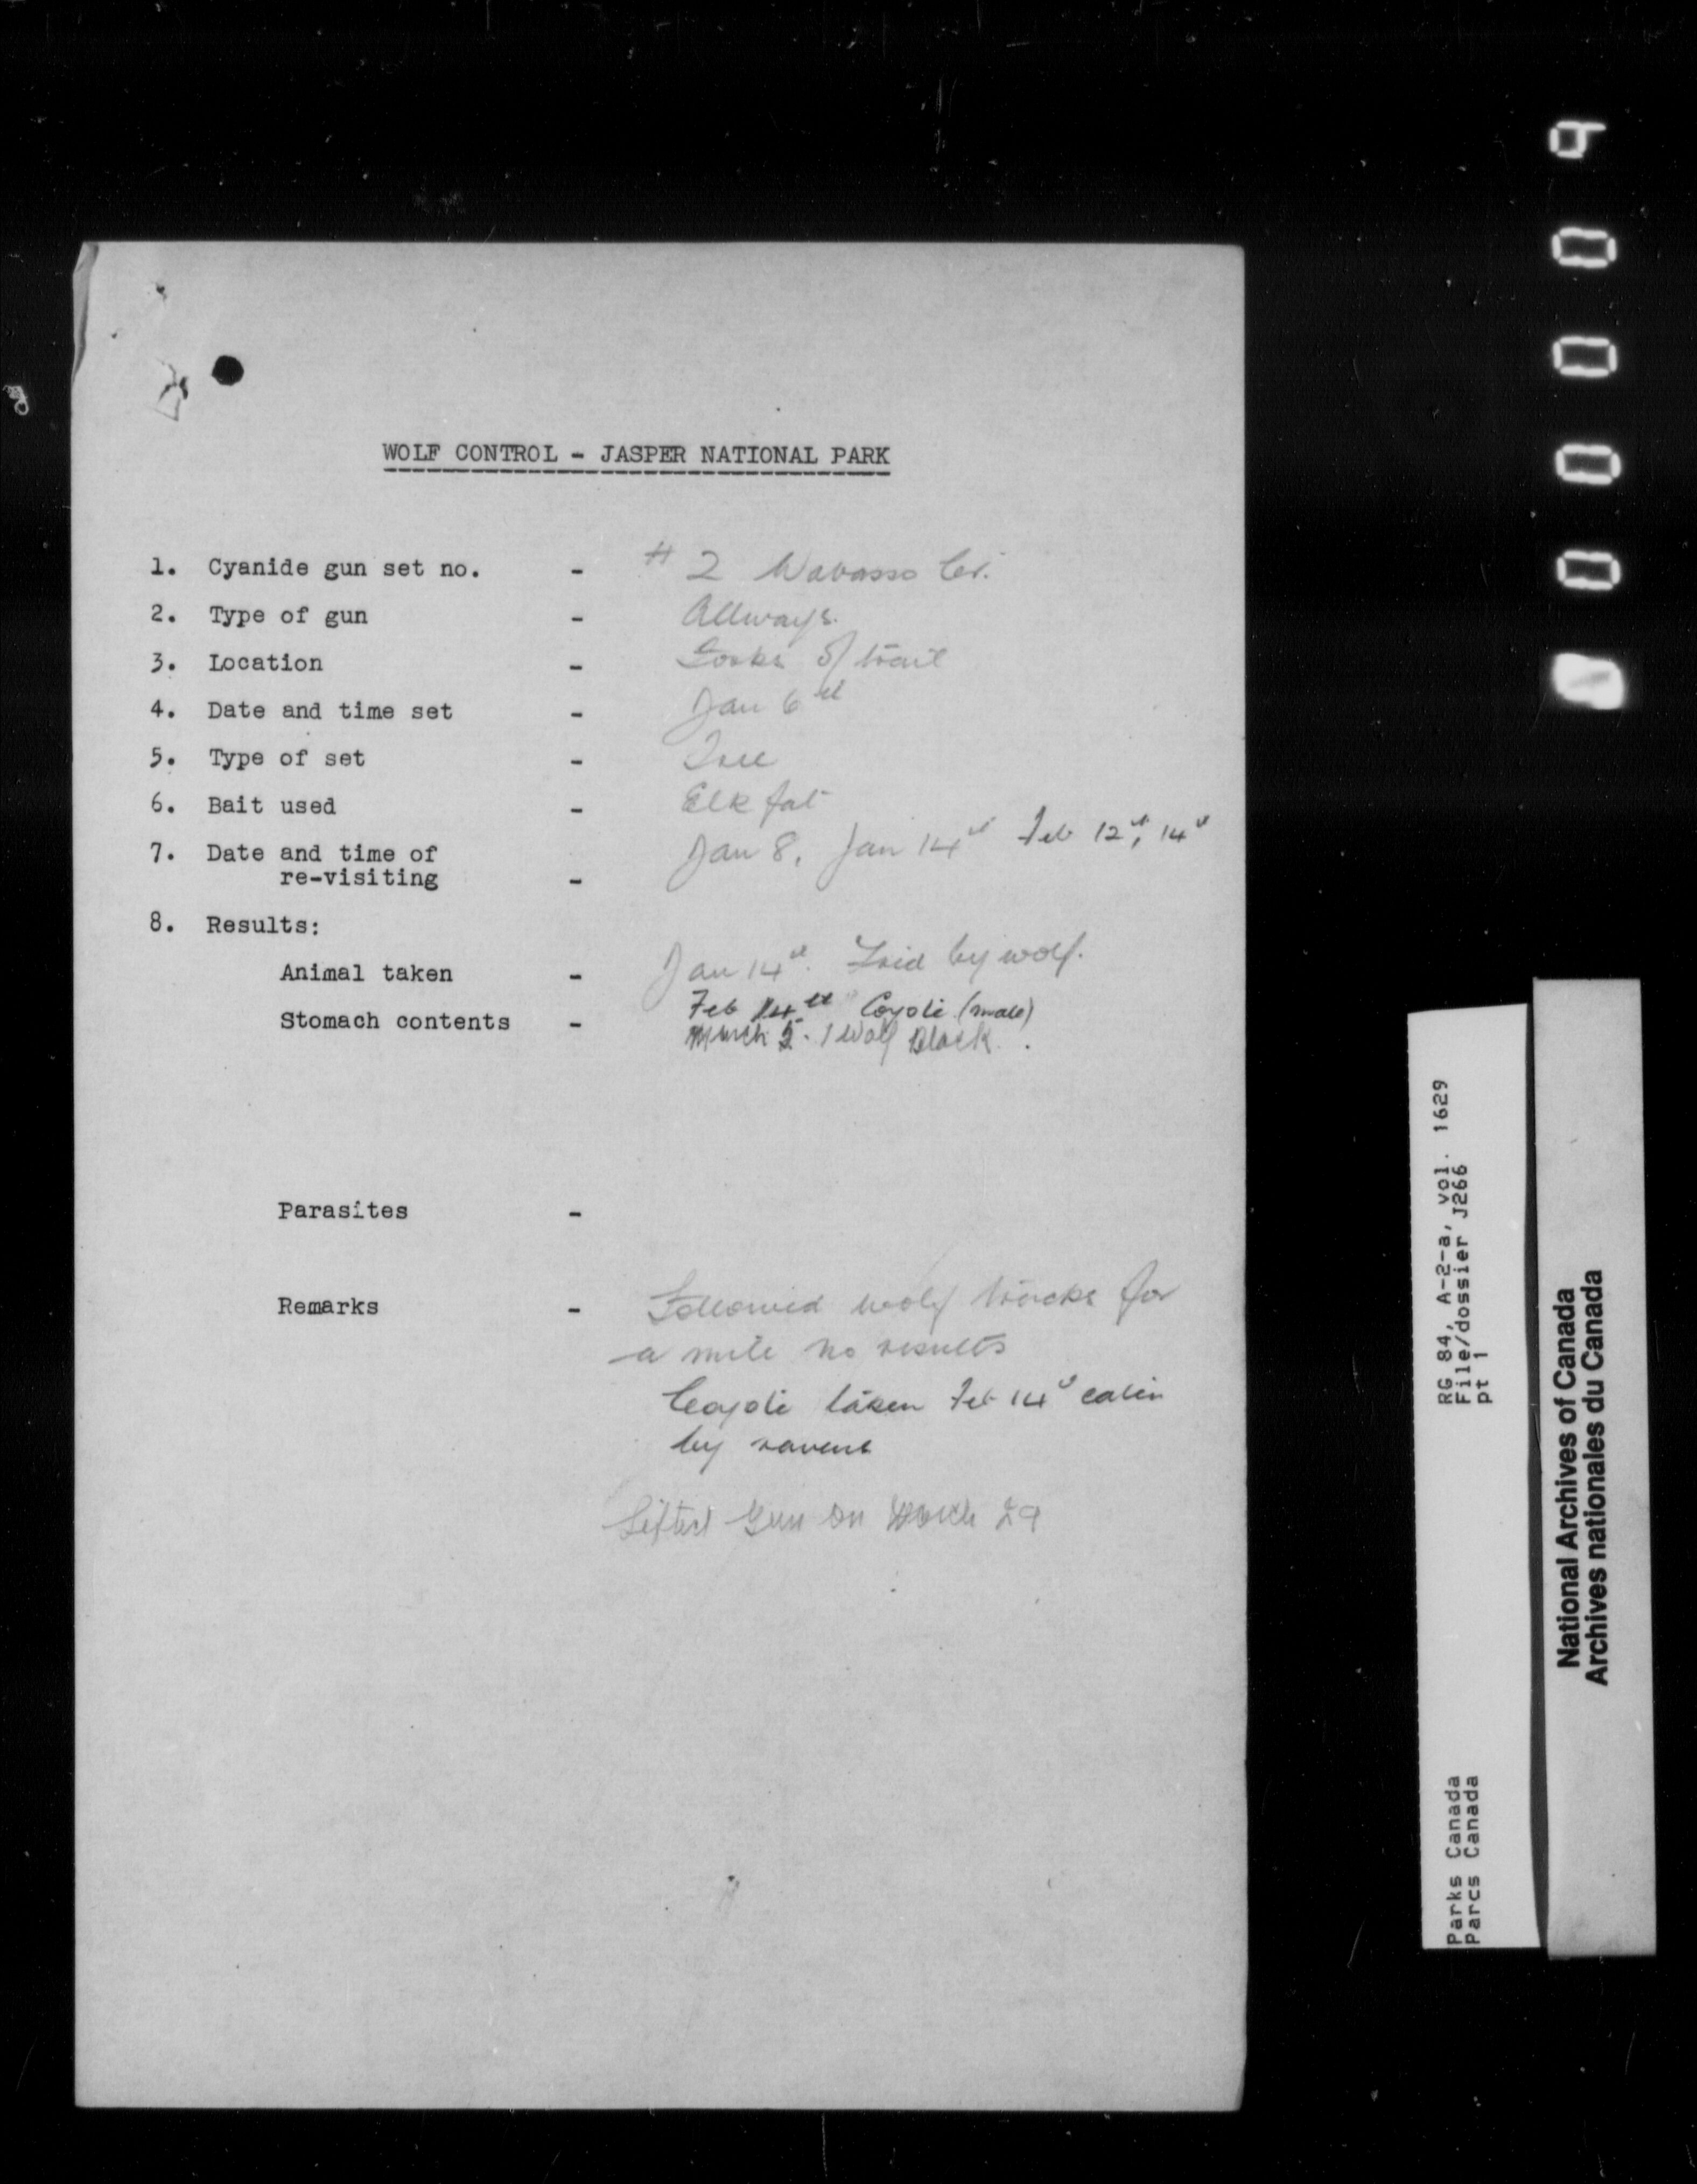 WOLF CONTROL - JASPER NATIONAL PARK
1. Cyanide gun set no. - # 2 Wabasso Cr.
2. Type of gun - Allways.
3. Location - Forks of trail
4. Date and time set - Jan 6th
5. Type of set - Tree
6. Bait used - Elk fat
7. Date and time of Jan 8, Jan 14th Feb 12th, 14th
re-visiting -
8. Results:
Animal taken - Jan 14th. Fired by wolf.
Feb 14th Coyote (male)
Stomach contents - March 5. 1 Wolf Black.
Parasites -
Remarks - Followed wolf tracks for
a mile no results
Coyote taken Feb 14th eaten
by ravens
Lifted Gun on March 29
RG 84, A-2-a, vol. 1629
File/dossier J266
pt 1
Parks Canada
Parcs Canada
National Archives of Canada
Archives nationales du Canada